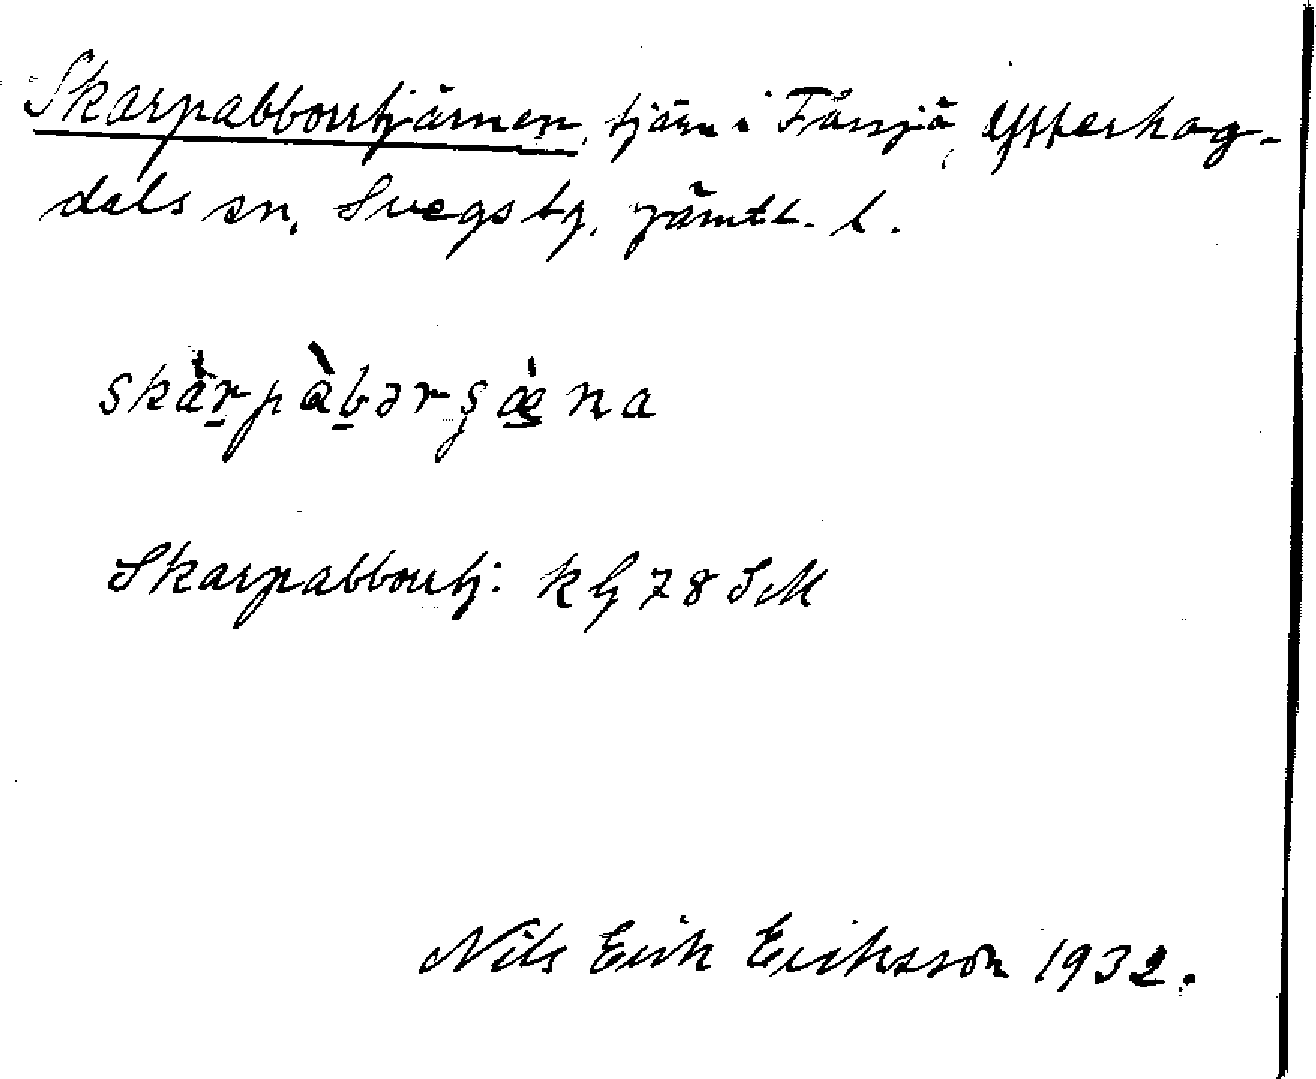 Skarpabborrtjärnen, tjärn i Fåssjö, Ytterhog-
dals sn, Svegs tg, Jämtl. l.
skàrpàbərşæ̀na
Skarpabborrtj: kbl 78 SM
Nils Erik Eriksson 1932.